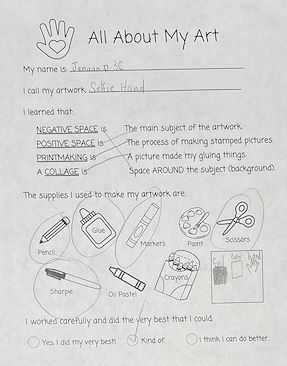 All About My Art
My name is:
I call my artwork Selfie Hand
I learned that:
NEGATIVE SPACE is The main subject of the artwork.
POSITIVE SPACE is The process of making stamped pictures.
PRINTMAKING is A picture made my gluing things.
A COLLAGE is Space AROUND the subject (background).
The supplies I used to make my artwork are:
Pencil
Glue
Markers
Paint
Scissors
Sharpie
Oil Pastel
Crayons
I worked carefully and did the very best that I could:
Yes, I did my very best! Kind of. I think I can do better.